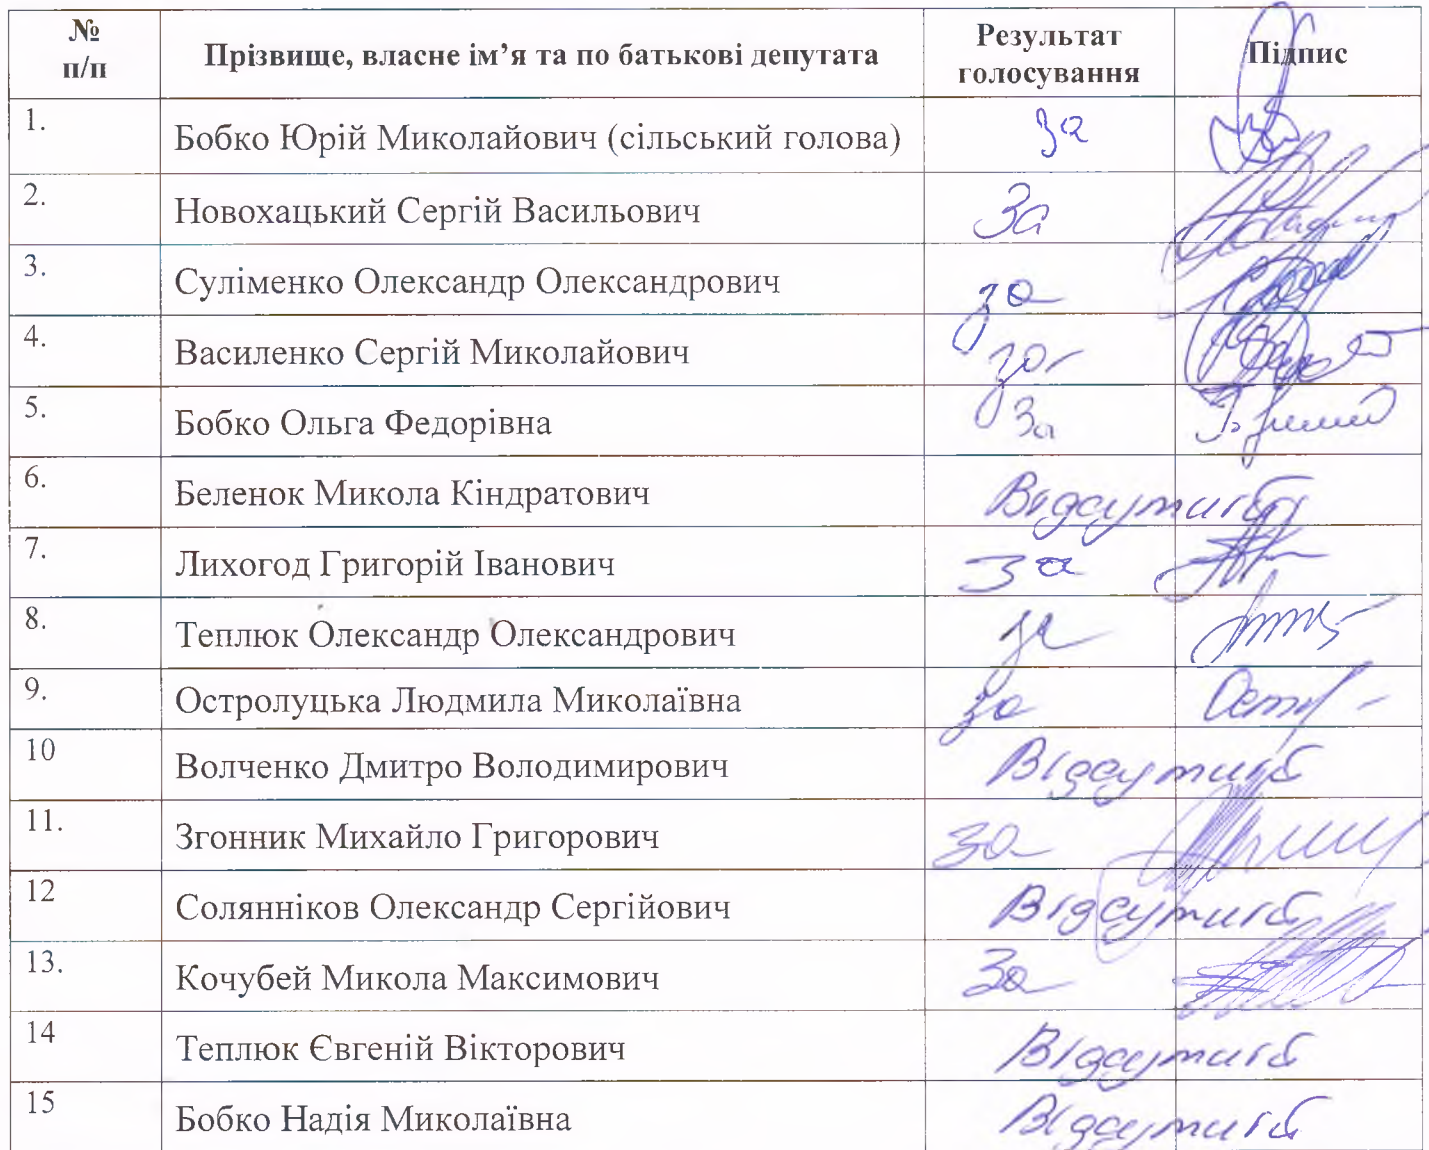 № п/п Прізвище, власне ім’я та по батькові депутата Результат голосування Підпис
1. Бобко Юрій Миколайович (сільський голова) за
2. Новохацький Сергій Васильович За
3. Суліменко Олександр Олександрович за
4. Василенко Сергій Миколайович за
5. Бобко Ольга Федорівна За
6. Беленок Микола Кіндратович Відсутній
7. Лихогод Григорій Іванович За
8. Теплюк Олександр Олександрович за
9. Остролуцька Людмила Миколаївна за
10 Волченко Дмитро Володимирович Відсутній
11. Згонник Михайло Григорович За
12 Солянніков Олександр Сергійович Відсутній
13. Кочубей Микола Максимович За
14 Теплюк Євгеній Вікторович Відсутній
15 Бобко Надія Миколаївна